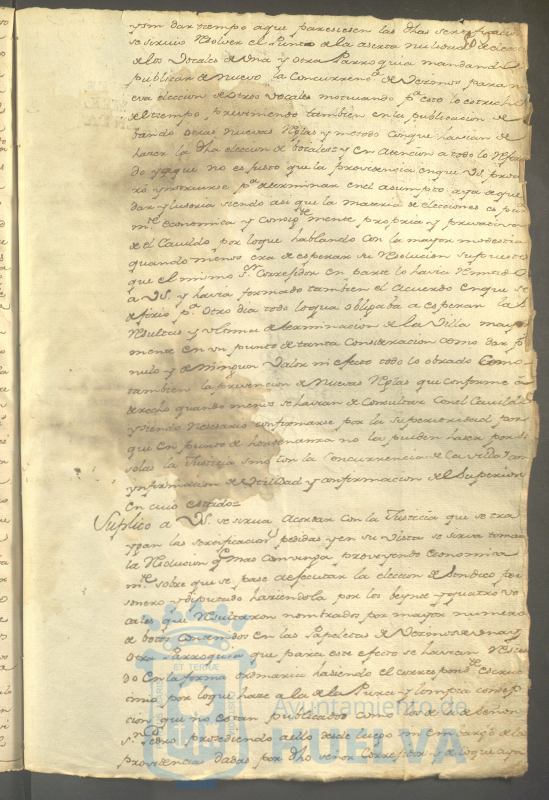 y sin dar tiempo a que pareciesen las dhas sertificacio
se sirvio Resolver el Punto de la aserta nulidad de elecci
de los Vocales de Una y otra Parroquia mandando
publicar de nuevo la Concurrenᵃ de Vezinos para nu
eva eleccion de otros Vocales motivando pᵃ esto lo estrecho
del tiempo, previniendo tambien en la publicacion de
bando otras nuevas Reglas y metodo con que havian de
hazer la dha eleccion de bocales = y en atencion a todo lo Referi
do y a que no es justo que la providencia en que VS. procu
ró ynstruirse pᵃ determinar en el asumpto aya de que
dar ylusoria siendo asi que la materia de elecciones es pura
mᵗᵉ economica y consigᵗᵉ mente propria y privativa
de el Cavildo por lo que hablando con la mayor modestia
quando menos era de esperar su Resolucion supuesto
que el mismo Sʳ Corregidor en parte lo havia Remitido
a VS. y havia formado tambien el Acuerdo en que se
defirio pᵃ otro dia todo lo qual obligaba a esperar la
Resulta y ultima determinacion de la Villa mayor
mente en un punto de tanta Consideracion como dar por
nulo y de ningun Valor ni efecto todo lo obrado Como
tambien la prevencion de Nuevas Reglas que conforme a
derecho quando menos se havian de Consultar Con el Cavildo
y siendo Necesario confirmarse por la Superioridad por
que en punto de hordenanza no las pueden hazer por si
solas la Justicia sino con la Concurrencia de la Villa con
ynformacion de Utilidad y confirmacion del Superior
En cuio estado =
Suplico a VS. se sirva Acordar con la Justicia que se tra
ygan las sertificacionˢ pedidas y en su Vista se sirva tomar
la Resolucion q mas Convenga proveyendo economica
mᵗᵉ sobre que se pase a efecutar la eleccion de Sindico per
sonero y Diputado haziendola por los beynte y quatro vo
cales que Resultaron nombrados por mayor numero
de botos Contenidos en las Papeletas de Vezinos de Una y
Otra Parroquia que para este efecto se havian Resivi
do en la forma ordinaria haziendo el correspondᵗᵉ escru
tinio por lo que haze a la de la Pura y limpia Consep
cion que no estan publicados como los de la de Señor
Sⁿ Pedro procediendo a ello desde luego sin embargo de las
Providencias dadas por dho señor Corregidor y a lo que aya
Ayuntamiento de
HUELVA
ET TERRÆ